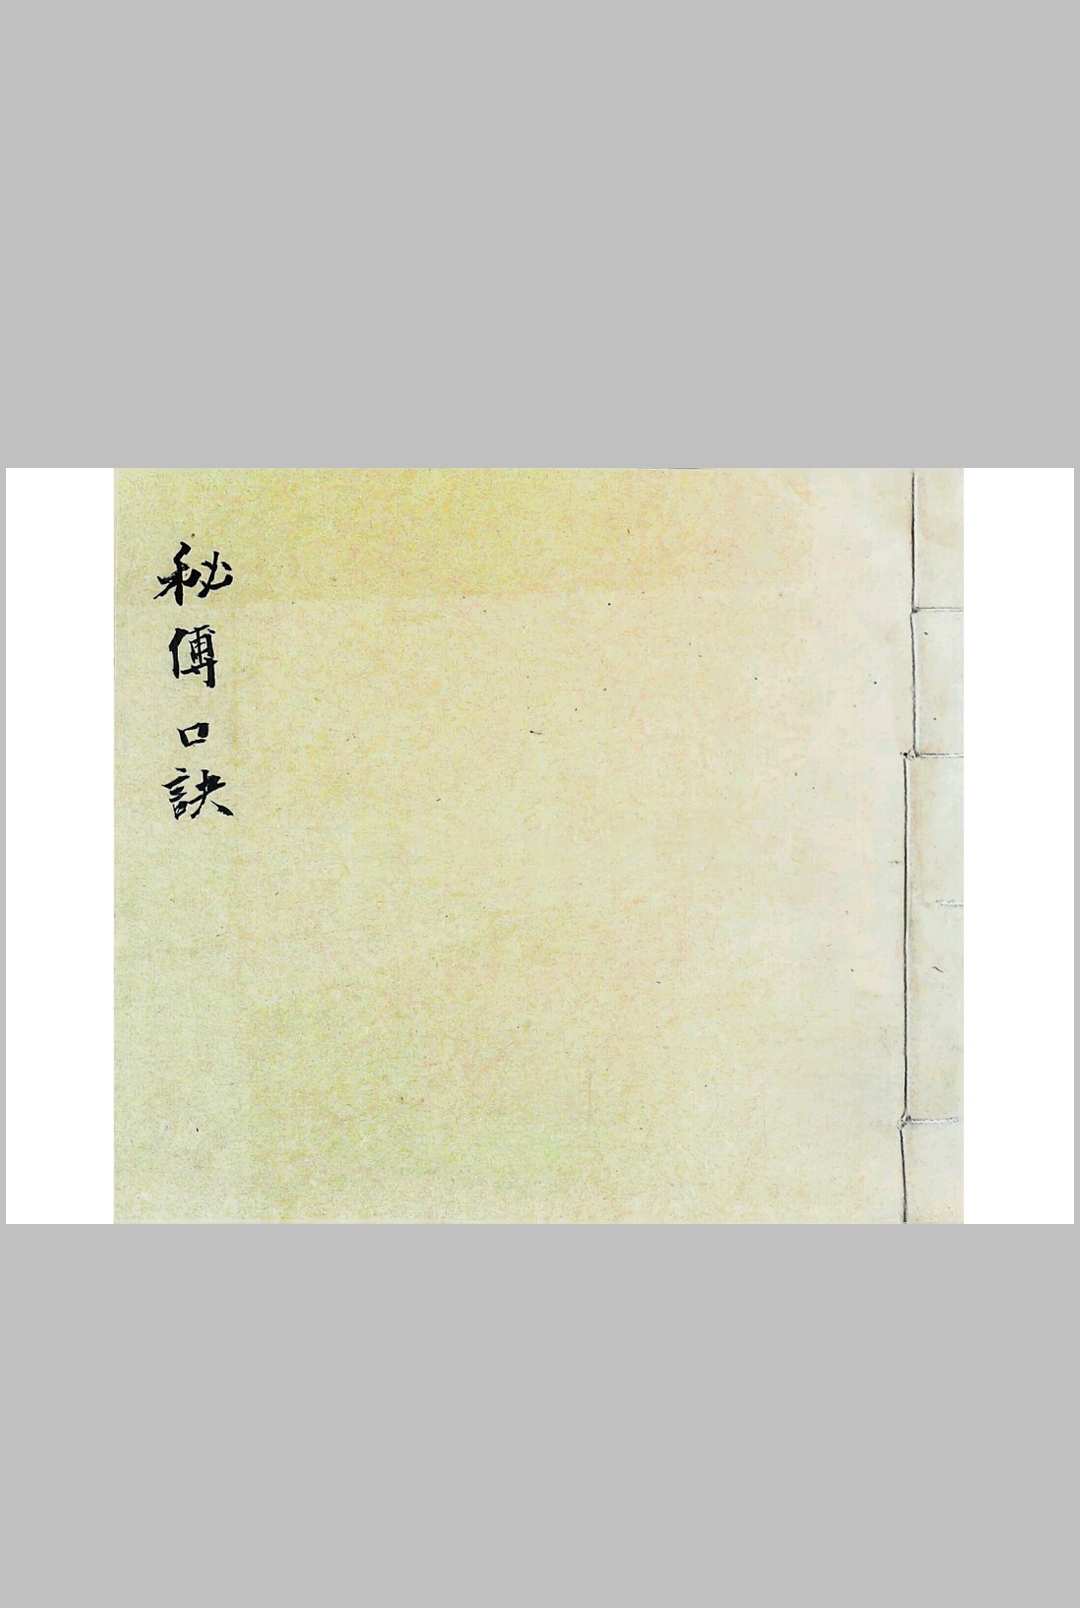 秘傳口訣